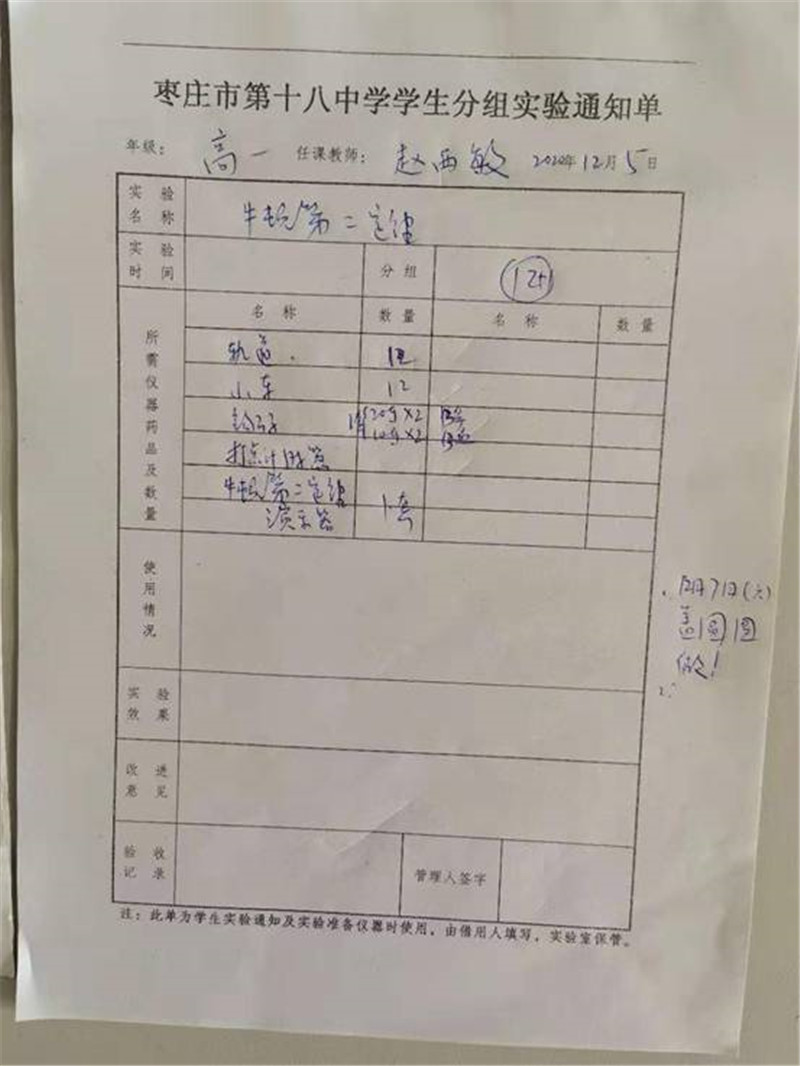 枣庄市第十八中学学生分组实验通知单
年级： 高一 任课教师： 赵西敏 2020年12月5日
实验名称 牛顿第二定律
实验时间 分组 12
名称 数量 名称 数量
所需仪器药品及数量
轨道 12
小车 12
钩码 20g×2
10g×2
打点计时器
牛顿第二定律
演示器 1套
使用情况
12月7日(六)
孟圆圆
做！
实验效果
改进意见
验收记录 管理人签字
注：此单为学生实验通知及实验准备仪器时使用，由借用人填写，实验室保管。